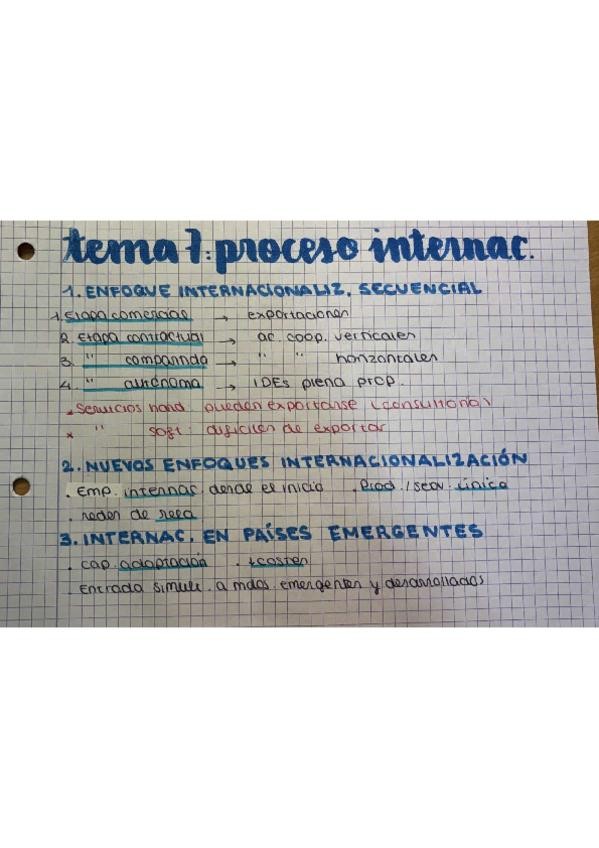 tema 7: proceso internac.
1. ENFOQUE INTERNACIONALIZ. SECUENCIAL
1. Etapa comercial → exportaciones
2. Etapa contractual → ac. coop. verticales
3. " compartida → " " horizontales
4. " autónoma → IDEs plena prop.
* Servicios hard: pueden exportarse (consultoría)
* " soft: difíciles de exportar
2. NUEVOS ENFOQUES INTERNACIONALIZACIÓN
. Emp. internac. desde el inicio . Prod./serv. único
. redes de
3. INTERNAC. EN PAÍSES EMERGENTES
. cap. adaptación . +costes
. Entrada simult. a mdos. emergentes y desarrollados